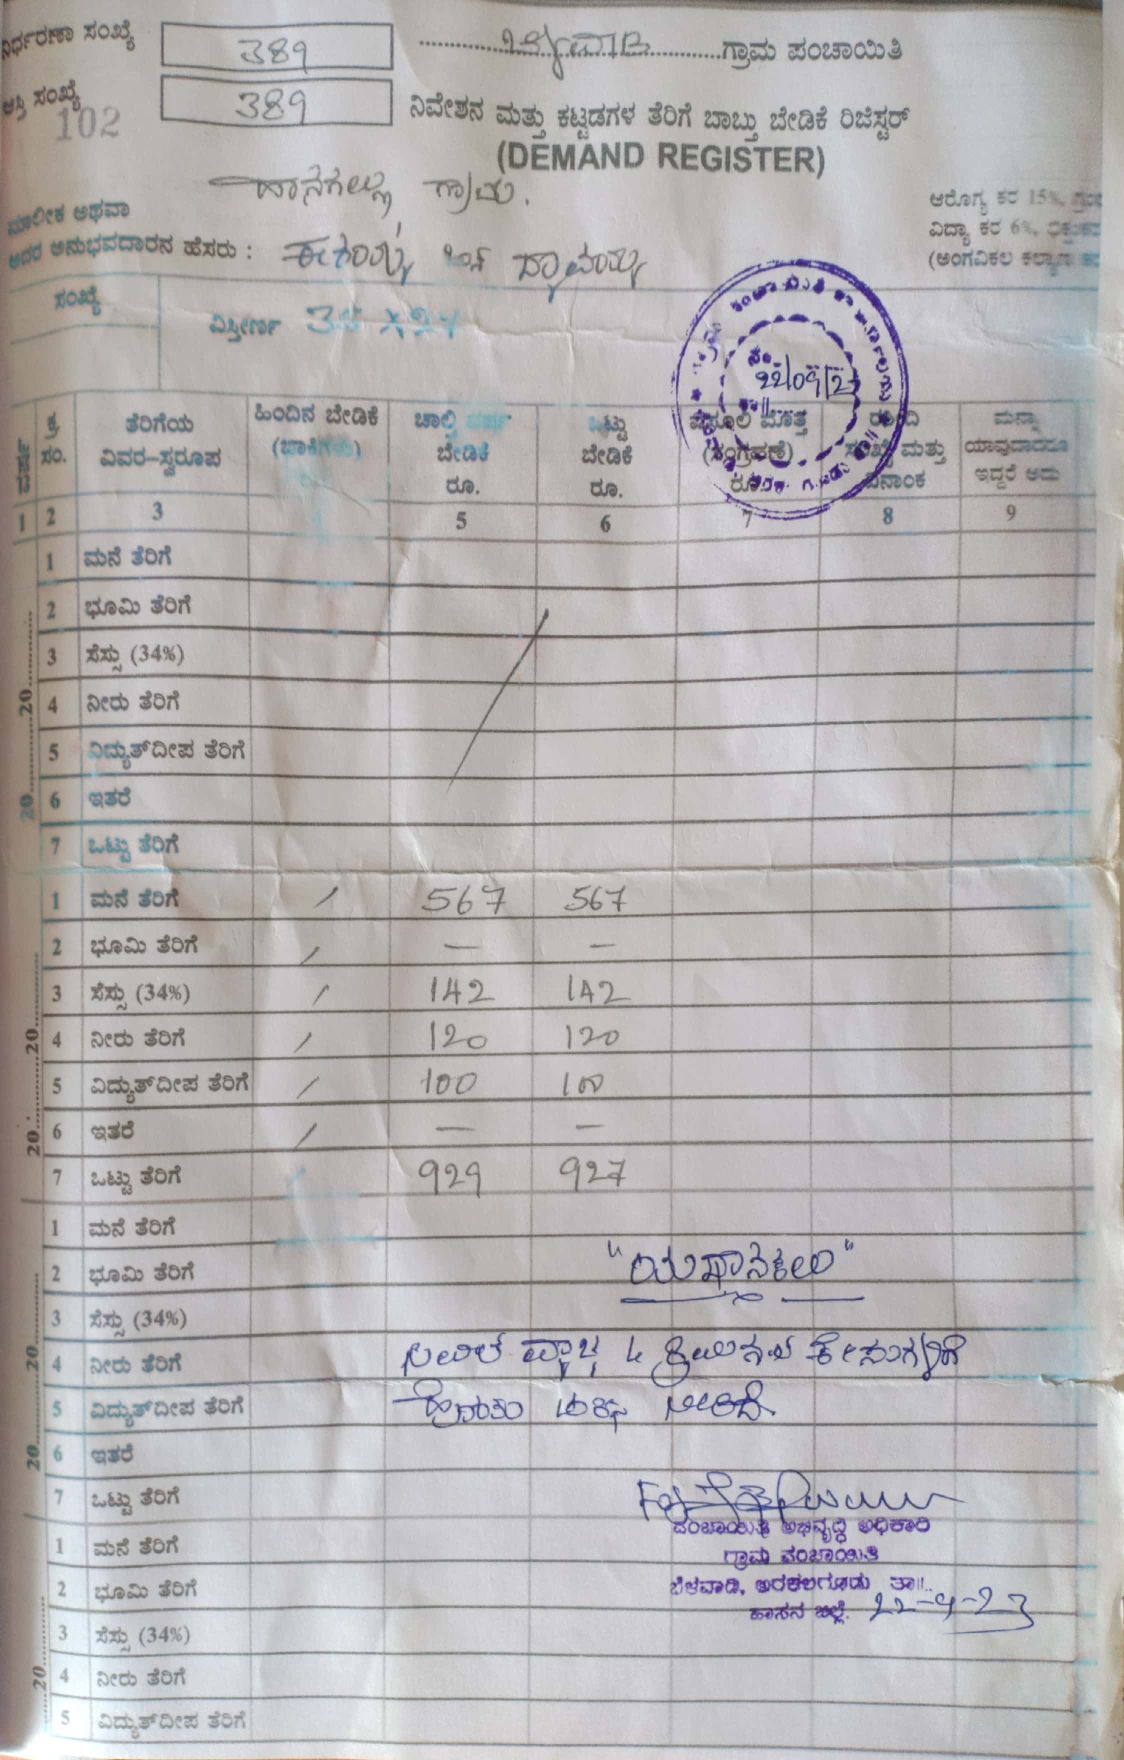 ನಿರ್ಧರಣಾ ಸಂಖ್ಯೆ 389 ಗ್ರಾಮ ಪಂಚಾಯಿತಿ
ಆಸ್ತಿ ಸಂಖ್ಯೆ 389 ನಿವೇಶನ ಮತ್ತು ಕಟ್ಟಡಗಳ ತೆರಿಗೆ ಬಾಬ್ತು ಬೇಡಿಕೆ ರಿಜಿಸ್ಟರ್
102
(DEMAND REGISTER)
ಗ್ರಾಮ.
ಆರೋಗ್ಯ ಕರ 15%,
ಮಾಲೀಕ ಅಥವಾ
ವಿದ್ಯಾ ಕರ 6%,
ಅದರ ಅನುಭವದಾರನ ಹೆಸರು :
(ಅಂಗವಿಕಲ ಕಲ್ಯಾಣ
ಸಂಖ್ಯೆ
ವಿಸ್ತೀರ್ಣ
22/09/2
ವರ್ಷ ಕ್ರ ಸಂ. ತೆರಿಗೆಯ ವಿವರ-ಸ್ವರೂಪ ಹಿಂದಿನ ಬೇಡಿಕೆ (ಬಾಕಿಗಳು) ಚಾಲ್ತಿ ವರ್ಷ ಬೇಡಿಕೆ ರೂ. ಒಟ್ಟು ಬೇಡಿಕೆ ರೂ. ವಸೂಲಿ ಮೊತ್ತ (ಸಂಗ್ರಹಣೆ) ರೂ. ರಸೀದಿ ಸಂಖ್ಯೆ ಮತ್ತು ದಿನಾಂಕ ಮನ್ನಾ ಯಾವುದಾದರೂ ಇದ್ದರೆ ಅದು
1 2 3 5 6 7 8 9
1 ಮನೆ ತೆರಿಗೆ
2 ಭೂಮಿ ತೆರಿಗೆ
3 ಸೆಸ್ಸು (34%)
4 ನೀರು ತೆರಿಗೆ
5 ವಿದ್ಯುತ್‌ದೀಪ ತೆರಿಗೆ
6 ಇತರೆ
7 ಒಟ್ಟು ತೆರಿಗೆ
20.........20.........
1 ಮನೆ ತೆರಿಗೆ / 567 567
2 ಭೂಮಿ ತೆರಿಗೆ / — —
3 ಸೆಸ್ಸು (34%) / 142 142
4 ನೀರು ತೆರಿಗೆ / 120 120
5 ವಿದ್ಯುತ್‌ದೀಪ ತೆರಿಗೆ / 100 100
6 ಇತರೆ / — —
7 ಒಟ್ಟು ತೆರಿಗೆ 929 927
20.........20.........
1 ಮನೆ ತೆರಿಗೆ
2 ಭೂಮಿ ತೆರಿಗೆ
3 ಸೆಸ್ಸು (34%)
4 ನೀರು ತೆರಿಗೆ
5 ವಿದ್ಯುತ್‌ದೀಪ ತೆರಿಗೆ
6 ಇತರೆ
7 ಒಟ್ಟು ತೆರಿಗೆ
20.........20.........
ಪಂಚಾಯಿತಿ ಅಭಿವೃದ್ಧಿ ಅಧಿಕಾರಿ
ಗ್ರಾಮ ಪಂಚಾಯಿತಿ
ಬೆಳವಾಡಿ, ಅರಕಲಗೂಡು ತಾ||.
ಹಾಸನ ಜಿಲ್ಲೆ. 22-9-23
1 ಮನೆ ತೆರಿಗೆ
2 ಭೂಮಿ ತೆರಿಗೆ
3 ಸೆಸ್ಸು (34%)
4 ನೀರು ತೆರಿಗೆ
5 ವಿದ್ಯುತ್‌ದೀಪ ತೆರಿಗೆ
.........20